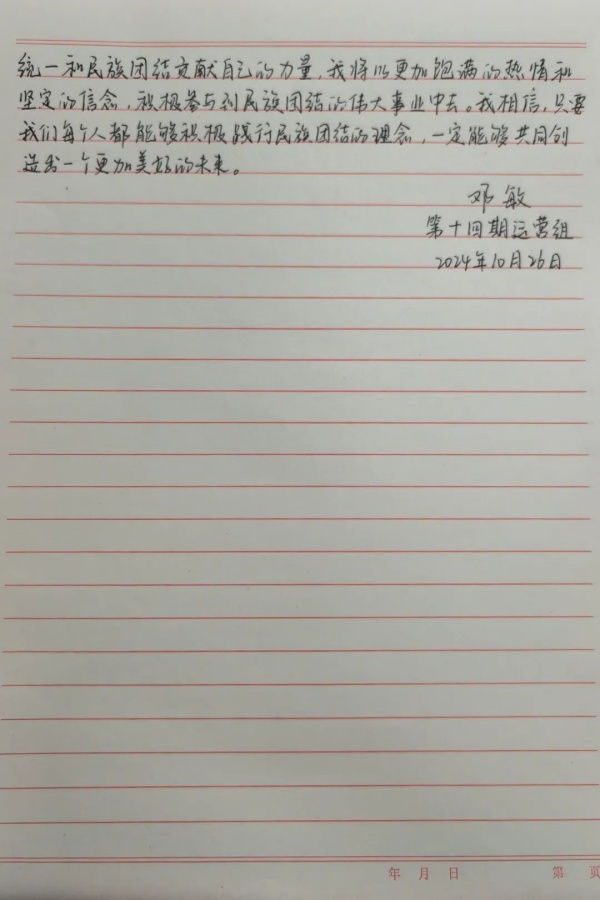 统一和民族团结贡献自己的力量，我将以更加饱满的热情和
坚定的信念，积极参与到民族团结的伟大事业中去。我相信，只要
我们每个人都能够积极践行民族团结的理念，一定能够共同创
造出一个更加美好的未来。
邓敏
第十四期运营组
2024年10月26日
年 月 日 第 页